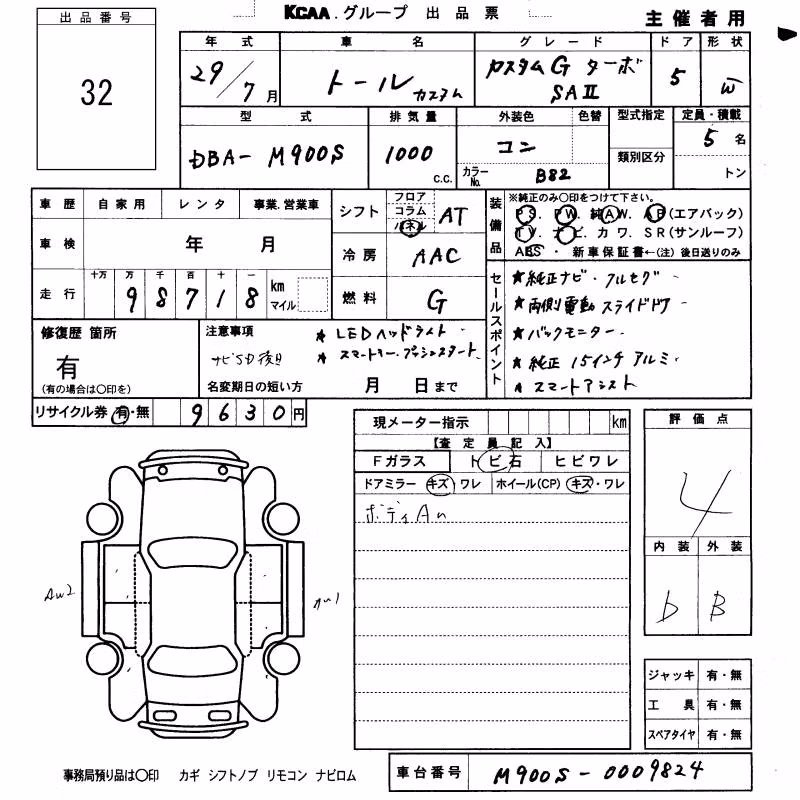 KCAA.グループ 出品票
主催者用
出品番号
32
年式 車名 グレード ドア 形状
29/7月 トール カスタム カスタムG ターボ SAⅡ 5 W
型式 排気量 外装色 色替 型式指定 定員・積載
DBA-M900S 1000 c.c. コン カラーNo. B82 類別区分 5名 トン
車歴 自家用 レンタ 事業.営業車
シフト フロア コラム パネル AT
装備品 ※純正のみ○印をつけて下さい。
PS. PW. 純AW. AB(エアバック)
TV. ナビ. カワ. SR(サンルーフ)
ABS・ 新車保証書←(注) 後日送りのみ
車検 年 月
冷房 AAC
走行 十万 万 千 百 十 一 98718 km マイル
燃料 G
セールスポイント
★純正ナビ・フルセグ
★両側電動スライドドア
★バックモニター
★純正15インチアルミ
★スマートアシスト
修復歴 箇所
有
(有の場合は○印を)
注意事項
ナビSD後日
★LEDヘッドライト
★スマートキー.プッシュスタート
名変期日の短い方 月 日まで
リサイクル券 有・無 9630円
現メーター指示 km
【査定員記入】
Fガラス トビ石 ヒビワレ
ドアミラー キズ・ワレ ホイール(CP) キズ・ワレ
ボディAn
評価点
4
内装 外装
b B
AW2
ジャッキ 有・無
工具 有・無
スペアタイヤ 有・無
事務局預り品は○印 カギ シフトノブ リモコン ナビロム
車台番号 M900S-0009824